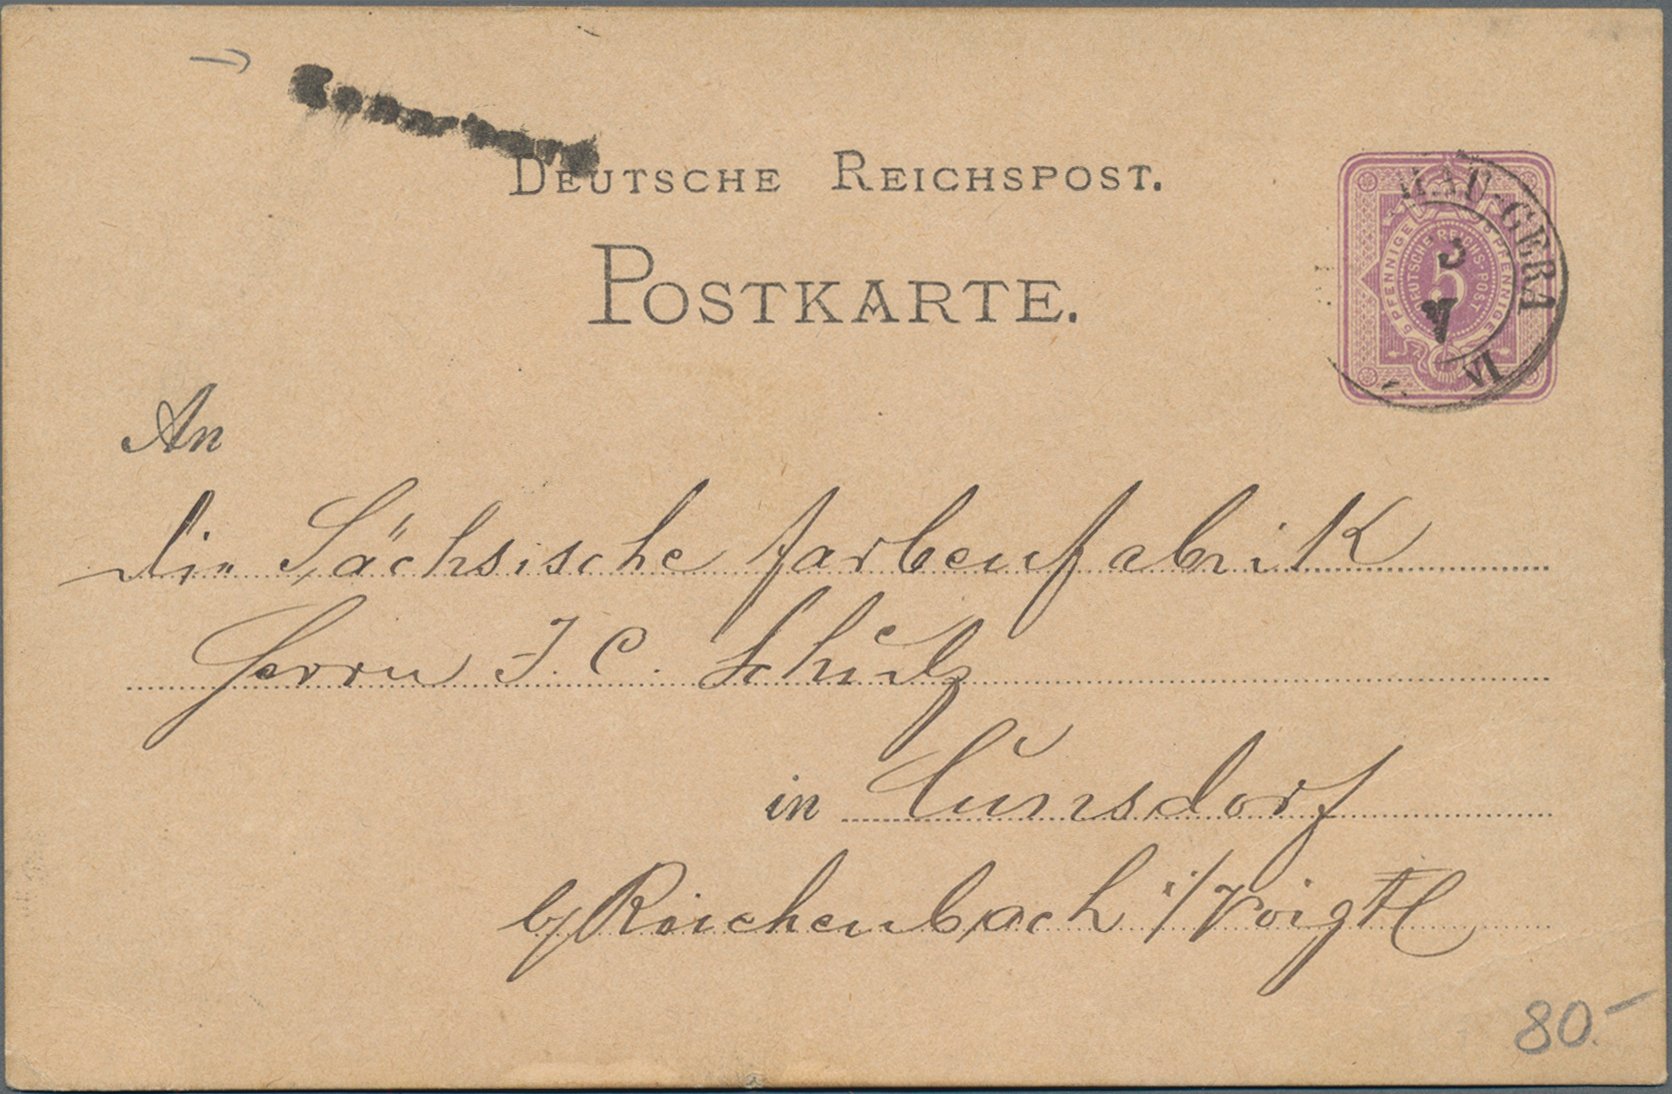 DEUTSCHE REICHSPOST.
POSTKARTE.
5 PFENNIGE 5 PFENNIGE
DEUTSCHE REICHS-POST
5
GERA
VI
An
die Sächsische Farbenfabrik
Herrn J. C. Schulz
in Cunsdorf
b/Reichenbach i/Voigtl
80.-